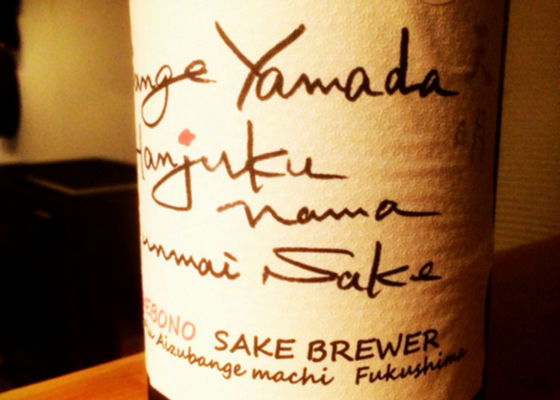 ange Yamada
Hanjuku
nama
unmai Sake
EBONO SAKE BREWER
Aizubange machi Fukushima